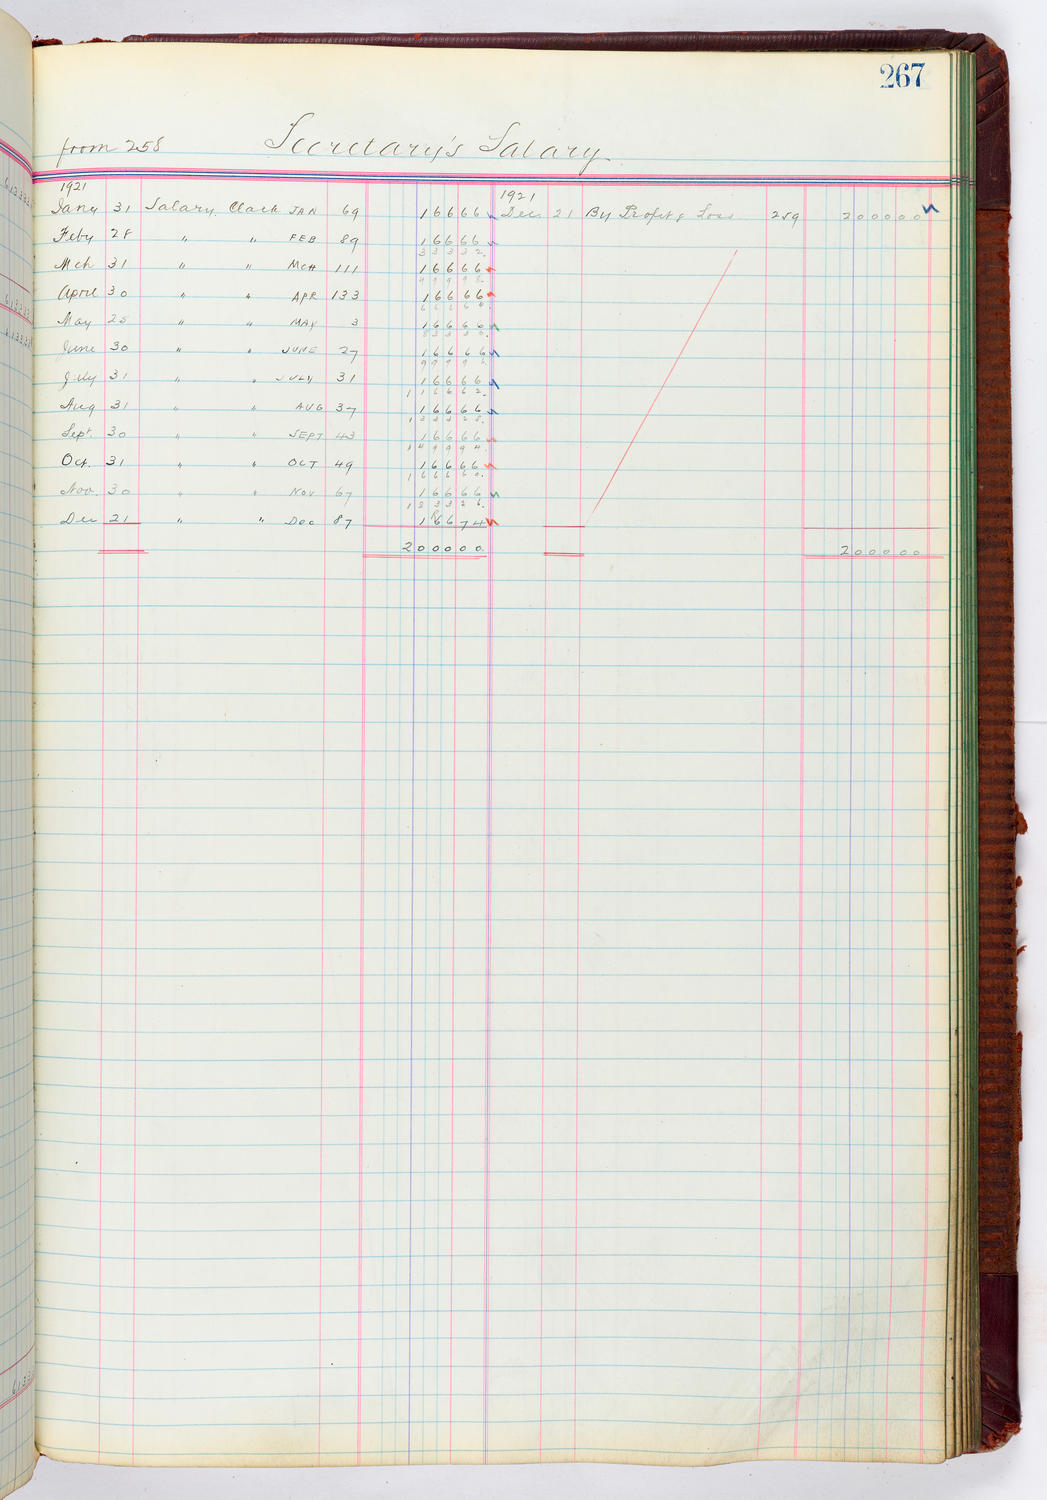 267
from 258 Secretary's Salary
1921 1921
Jany 31 Salary Clack JAN 69 16666 Dec. 21 By Profit & Loss 259 200000
Feby 28 " " FEB 89 16666
33332
Mch 31 " " MCH 111 16666
49998
April 30 " " APR 133 16666
66664
May 25 " " MAY 3 16666
83330
June 30 " " JUNE 27 16666
99996
July 31 " " JULY 31 16666
116662
Aug 31 " " AUG 37 16666
133328
Sept. 30 " " SEPT 43 16666
149994
Oct. 31 " " OCT 49 16666
166660
Nov. 30 " " NOV 67 16666
183326
Dec 21 " " Dec 87 16674
200000 200000